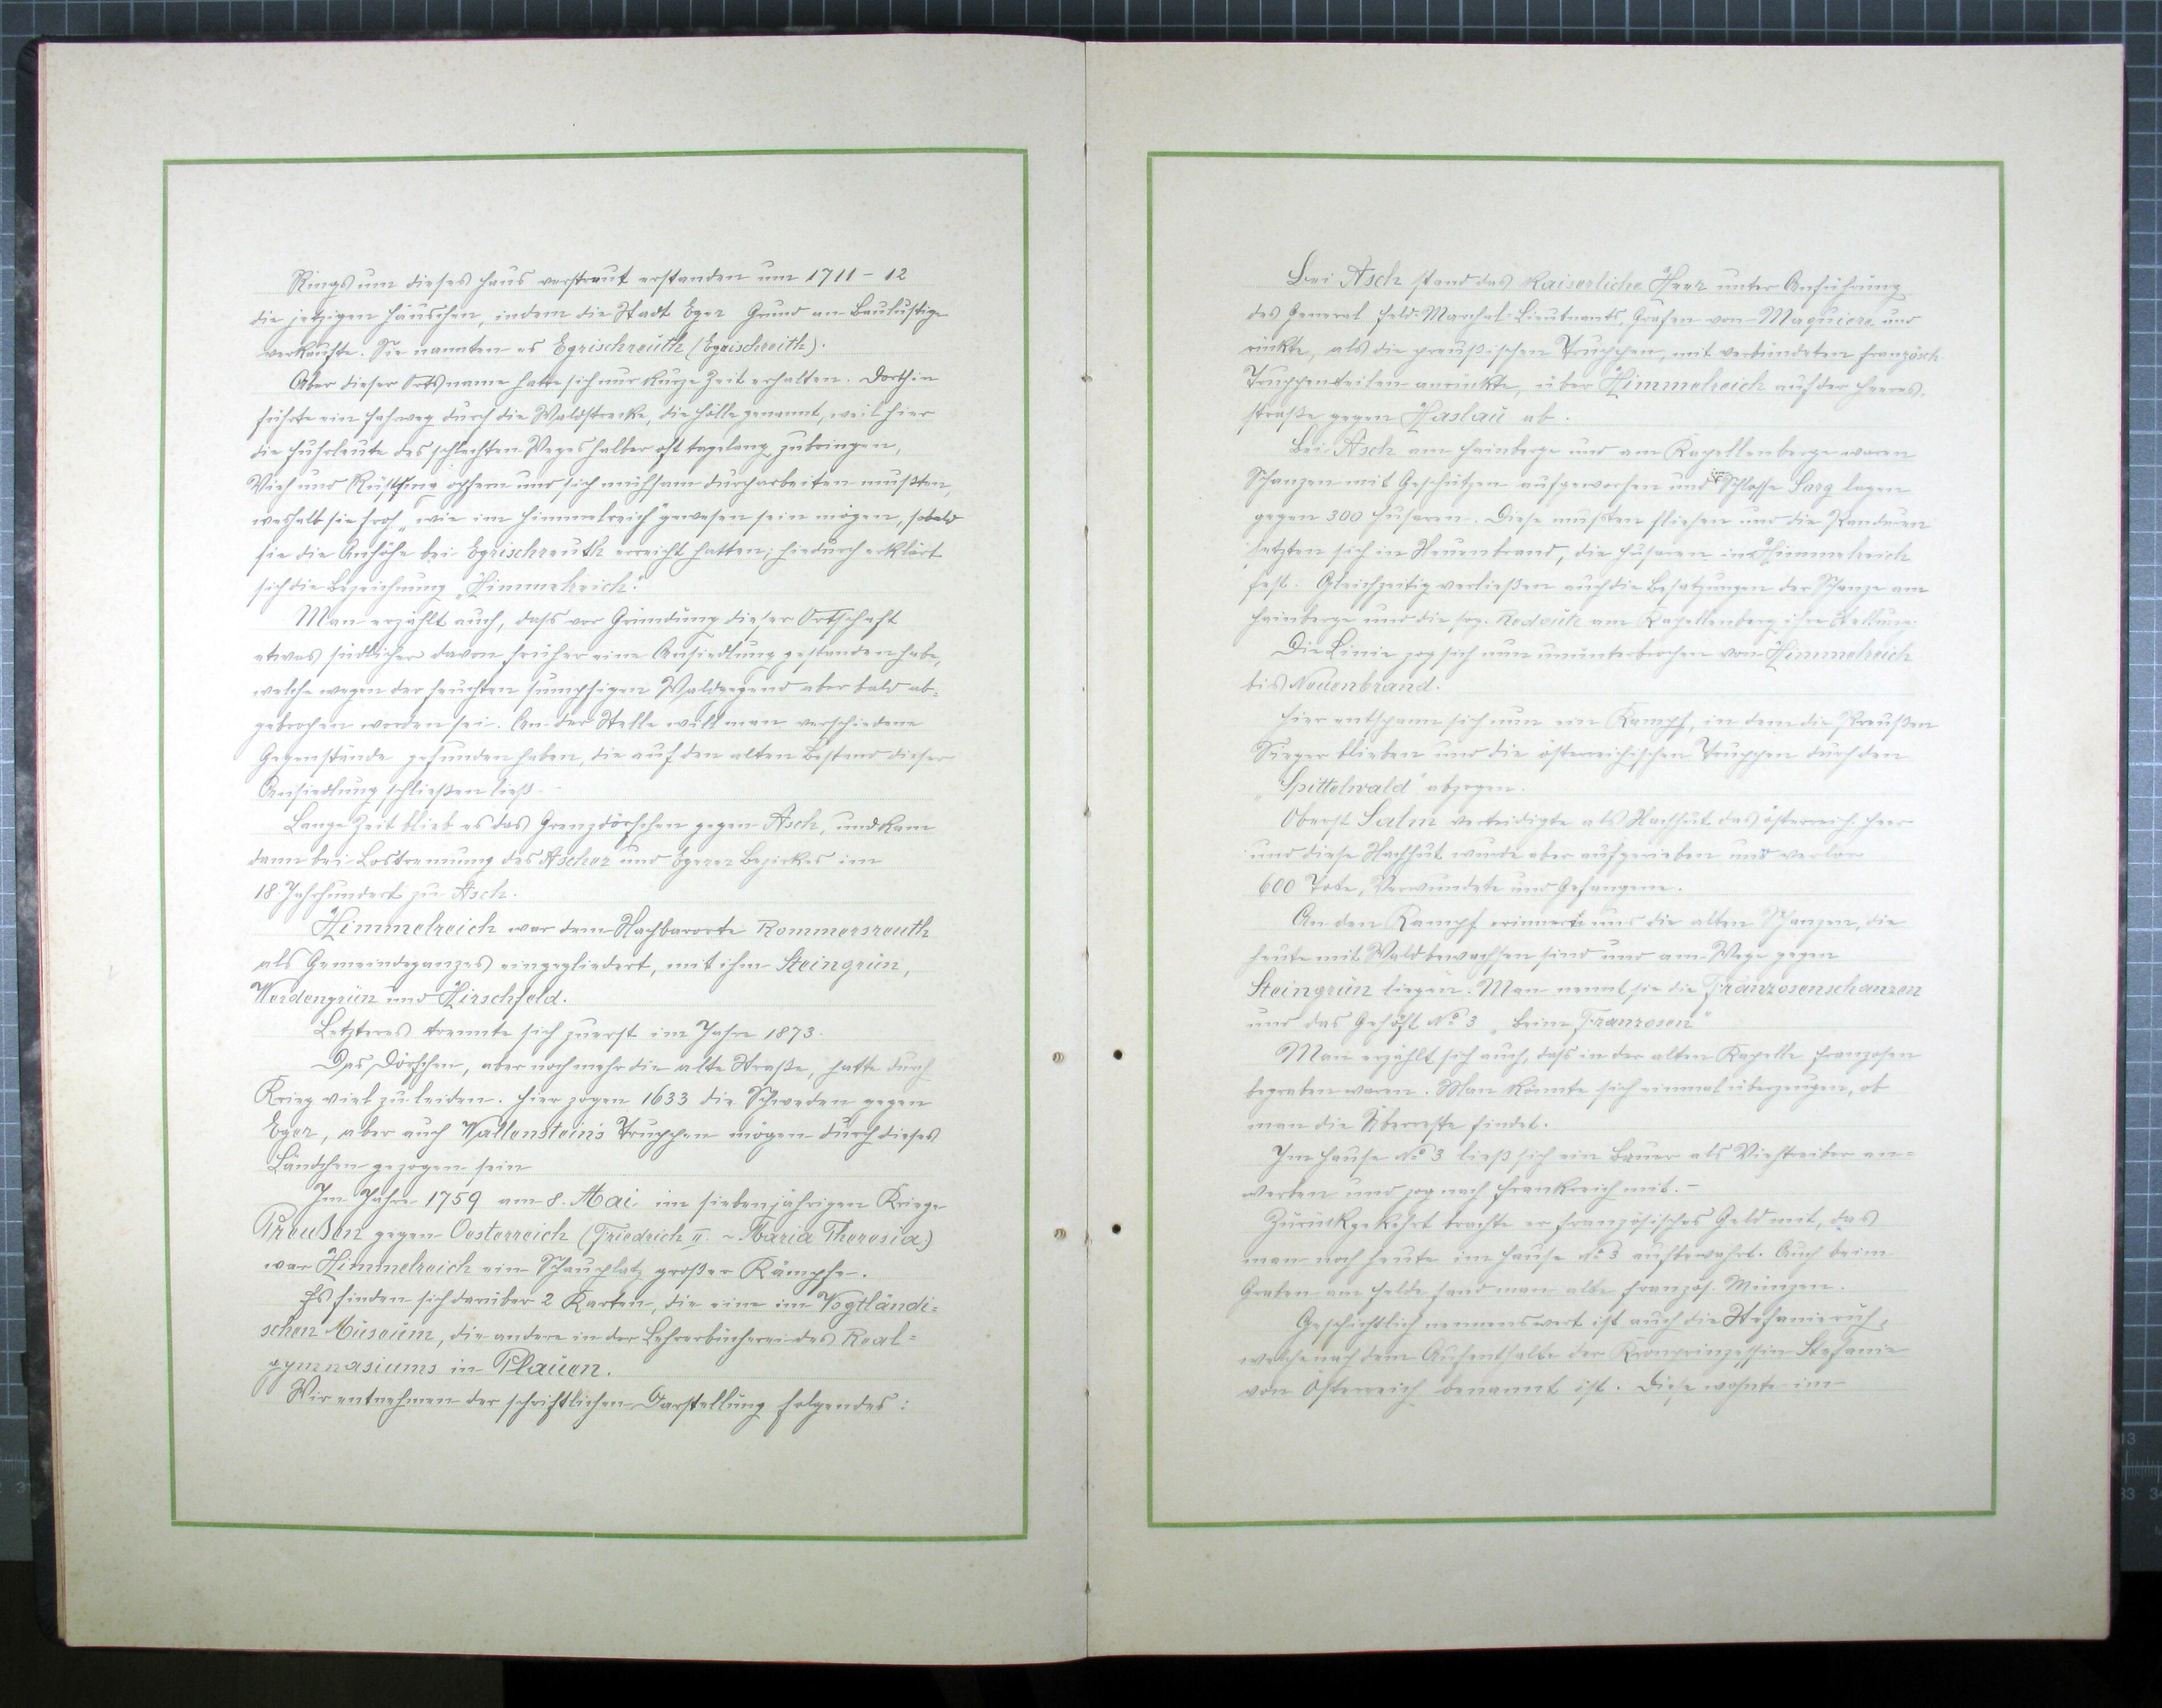 Rings um dieses Haus verstreut erstanden um 1711 – 12
die jetzigen Häuschen, indem die Stadt Eger Grund an Baulustige
verkaufte. Sie nannten es Egrischreuth (Egrischreith).
Aber dieser Ortsname hatte sich nur kurze Zeit erhalten. Dorthin
führte ein Fahrweg durch die Waldstrecke, die Hölle genannt, weil hier
die Fuhrleute des schlechten Weges halber oft tagelang zubringen,
Vieh und Rüstung opfern und sich mühsam durcharbeiten mußten,
weshalb sie froh „wie im Himmelreich" gewesen sein mögen, sobald
sie die Anhöhe bei Egrischreuth erreicht hatten; hiedurch erklärt
sich die Bezeichnung „Himmelreich".
Man erzählt auch, dass vor Gründung dieser Ortschaft
etwas südlicher davon früher eine Ansiedlung gestanden habe,
welche wegen der feuchten sumpfigen Waldgegend aber bald ab=
gebrochen worden sei. An der Stelle will man verschiedene
Gegenstände gefunden haben, die auf den alten Bestand dieser
Ansiedlung schließen ließ.
Lange Zeit blieb es das Grenzdörfchen gegen Asch, und kam
dann bei Lostrennung des Ascher und Egerer Bezirkes im
18. Jahrhundert zu Asch.
Himmelreich war dem Nachbarorte Rommersreuth
als Gemeindeganzes eingegliedert, mit ihm Steingrün,
Werdengrün und Hirschfeld.
Letzteres trennte sich zuerst im Jahre 1873.
Das Dörfchen, aber noch mehr die alte Straße, hatte durch
Krieg viel zu leiden. Hier zogen 1633 die Schweden gegen
Eger, aber auch Wallenstein's Truppen mögen durch dieses
Ländchen gezogen sein
Im Jahre 1759 am 8. Mai im siebenjährigen Kriege
Preußen gegen Oesterreich (Friedrich II. – Maria Theresia)
war Himmelreich ein Schauplatz großer Kämpfe.
Es finden sich darüber 2 Karten, die eine im Vogtländi=
schen Museum, die andere in der Lehrerbücherei des Real=
gymnasiums in Plauen.
Wir entnehmen der schriftlichen Darstellung folgendes:
Bei Asch stand das Kaiserliche Heer unter Anführung
des General Feld-Marchal-Lieutnants, Grafen von Maquiere und
rückte, als die preußischen Truppen, mit verbündeten französch.
Truppenteilen anrückte, über Himmelreich auf der Heeres-
straße gegen Haslau ab.
Bei Asch am Hainberge und am Kapellenberge waren
Schanzen mit Geschützen aufgeworfen und im Schlosse Sorg lagen
gegen 300 Husaren. Diese mußten fliehen und die Panduren
setzten sich in Neuenbrand, die Husaren in Himmelreich
fest. Gleichzeitig verließen auch die Besatzungen der Schanze am
Hainberge und die sog. Redouth am Kapellenberg ihre Stellung.
Die Linie zog sich nun ununterbrochen von Himmelreich
bis Neuenbrand.
Hier entspann sich nun ein Kampf, in dem die Preußen
Sieger blieben und die österreichischen Truppen durch den
„Spittelwald" abzogen.
Oberst Salm verteidigte als Nachhut das österreich. Heer
und diese Nachhut wurde aber aufgerieben und verlor
600 Tote, Verwundete und Gefangene.
An den Kampf erinnern uns die alten Schanzen, die
heute mit Wald bewachsen sind und am Wege gegen
Steingrün liegen. Man nennt sie die Franzosenschanzen
und das Gehöft No 3 „beim Franzosen"
Man erzählt sich auch, dass in der alten Kapelle Franzosen
begraben waren. Man könnte sich einmal überzeugen, ob
man die Überreste findet.
Im Hause No 3 ließ sich ein Bauer als Viehtreiber an=
werben und zog nach Frankreich mit. –
Zurückgekehrt brachte er französisches Geld mit, das
man noch heute im Hause No 3 aufbewahrt. Auch beim
Graben am Felde fand man alte französ. Münzen.
Geschichtlich nennenswert ist auch die Stefanieruh,
welche nach dem Aufenthalte der Kronprinzessin Stefanie
von Österreich benannt ist. Diese wohnte im